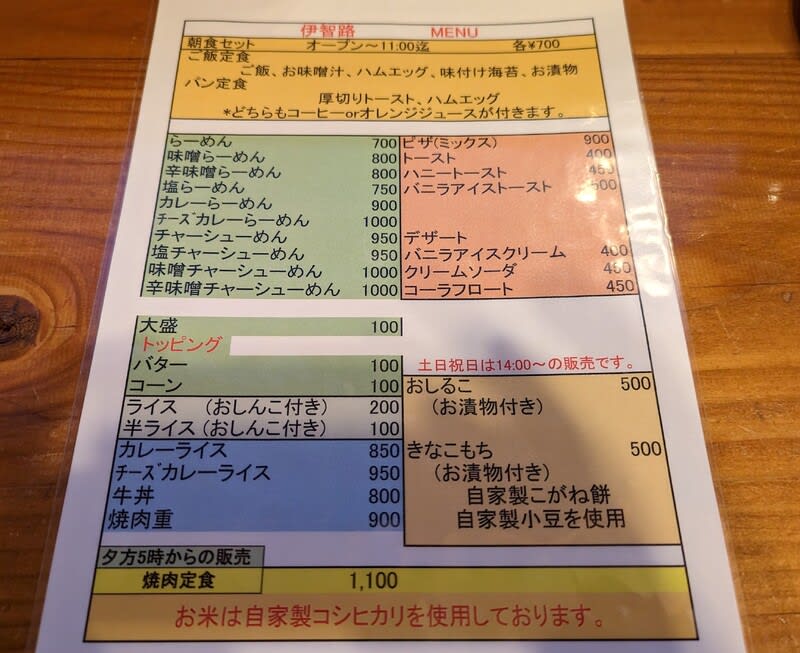 伊智路 MENU
朝食セット オープン～11:00迄 各¥700
ご飯定食
ご飯、お味噌汁、ハムエッグ、味付け海苔、お漬物
パン定食
厚切りトースト、ハムエッグ
*どちらもコーヒーorオレンジジュースが付きます。
らーめん 700
味噌らーめん 800
辛味噌らーめん 800
塩らーめん 750
カレーらーめん 900
チーズカレーらーめん 1000
チャーシューめん 950
塩チャーシューめん 950
味噌チャーシューめん 1000
辛味噌チャーシューめん 1000
ピザ(ミックス) 900
トースト 400
ハニートースト 450
バニラアイストースト 500
デザート
バニラアイスクリーム 400
クリームソーダ 450
コーラフロート 450
大盛 100
トッピング
バター 100
コーン 100
ライス （おしんこ付き） 200
半ライス（おしんこ付き） 100
カレーライス 850
チーズカレーライス 950
牛丼 800
焼肉重 900
土日祝日は14:00～の販売です。
おしるこ 500
（お漬物付き）
きなこもち 500
（お漬物付き）
自家製こがね餅
自家製小豆を使用
夕方5時からの販売
焼肉定食 1,100
お米は自家製コシヒカリを使用しております。